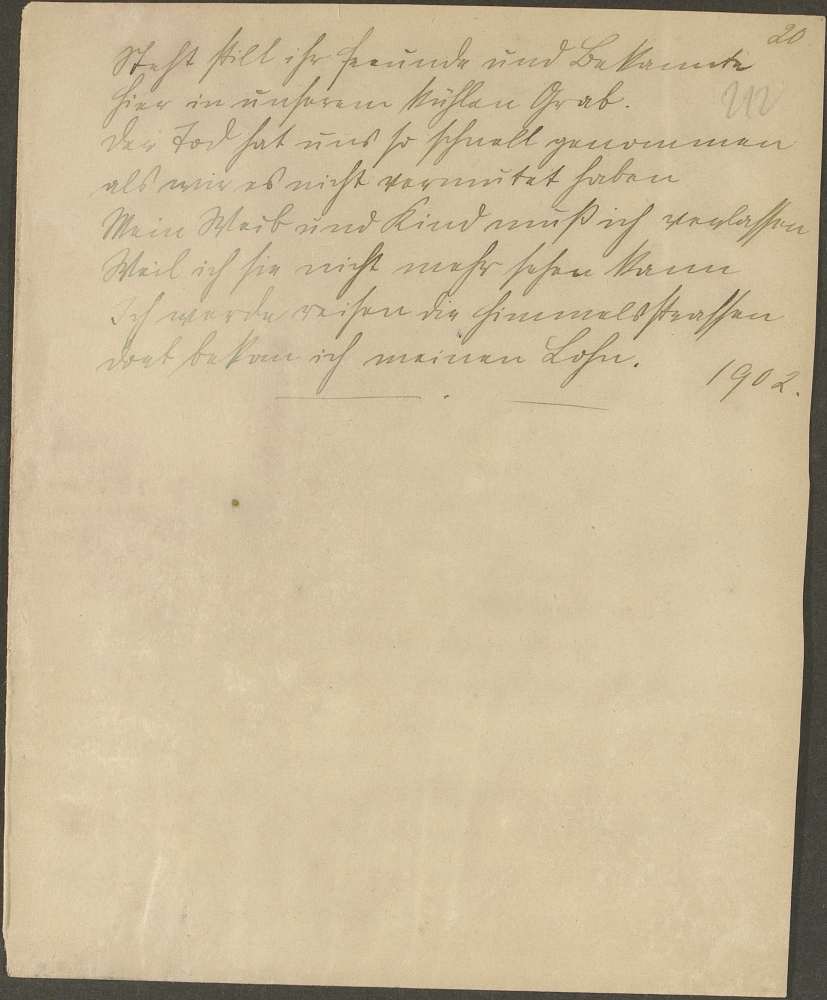 20
242
Steht still ihr freunde und Bekannte
hier in unserem kühlen Grab.
Der Tod hat uns so schnell genommen
als wir es nicht vermutet haben
Mein Weib und Kind muß ich verlassen
Weil ich sie nicht mehr sehen kann
Ich werde reisen die himmelsstrassen
dort bekom ich meinen Lohn.
1902.